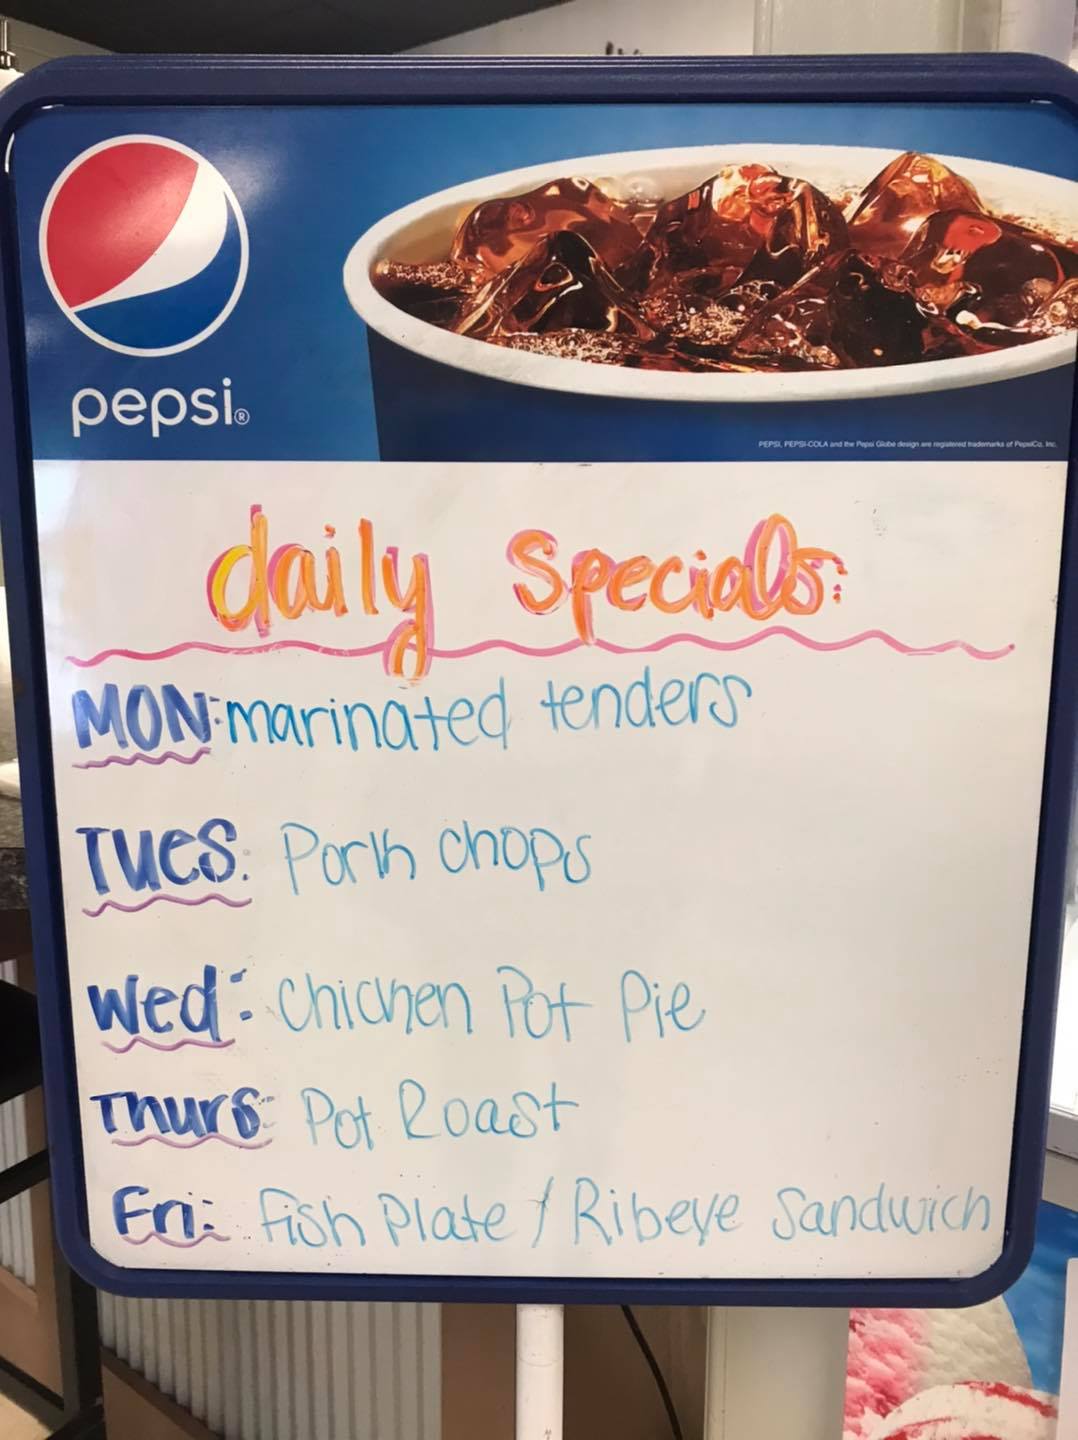 pepsi®
PEPSI, PEPSI-COLA and the Pepsi Globe design are registered trademarks of PepsiCo, Inc.
daily Specials:
MON: marinated tenders
TUES: Pork chops
Wed: Chicken Pot Pie
Thurs: Pot Roast
Fri: Fish Plate / Ribeye Sandwich